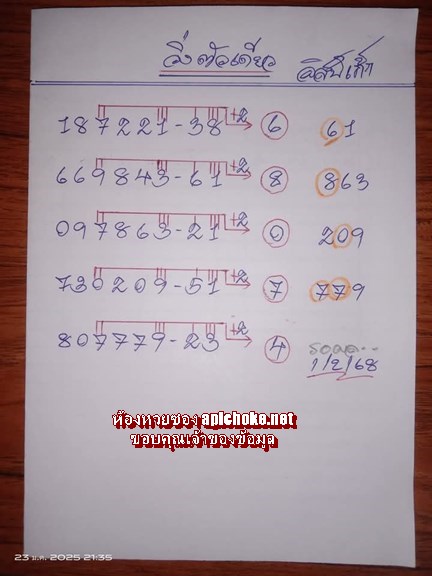 วิ่งตัวเดียว
187221-38 +2 6 61
669843-61 +2 8 863
097863-21 +2 0 209
730209-51 +2 7 779
807779-23 +2 4 รองวด..
1/2/68
ห้องหวยซอง apichoke.net
ขอบคุณเจ้าของข้อมูล
23 ม.ค. 2025 21:35